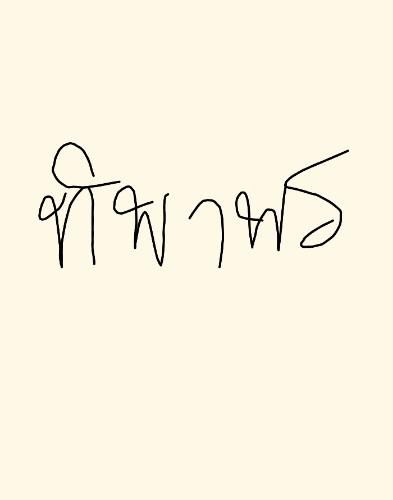 ทิพาพร